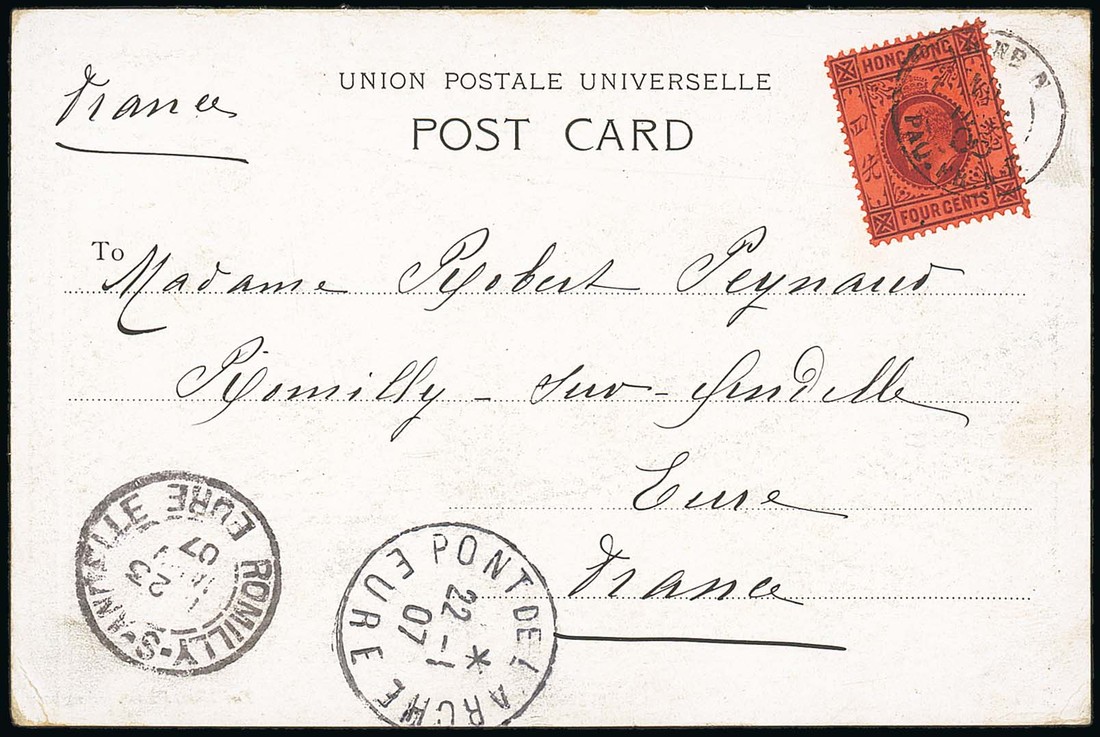 UNION POSTALE UNIVERSELLE
POST CARD
France
HONG KONG
香港
四 先
FOUR CENTS
PAQ
To
Madame Robert Peynaud
Romilly - sur - Andelle
Eure
France
ROMILLY-S-ANDELLE EURE
23
07
PONT DE L'ARCHE EURE
22 -1
07
*